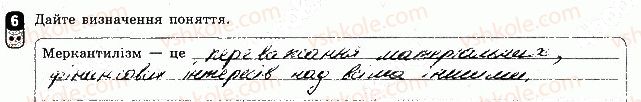 6 Дайте визначення поняття.
Меркантилізм — це переважання матеріальних,
фінансових інтересів над всіма іншими.